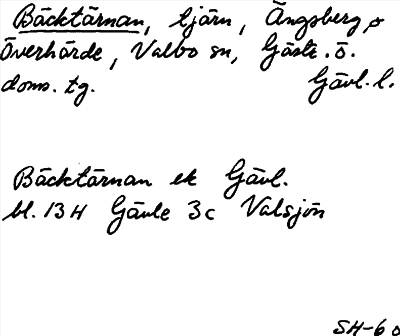 Bäcktärnan, tjärn, Ängsberg o
Överhärde, Valbo sn, Gästr. ö.
dom. tg. Gävl. l.
Bäcktärnan ek Gävl.
bl. 13 H Gävle 3c Valsjön
SH-6 o